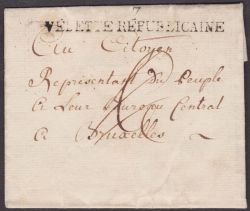 VÉLETTE RÉPUBLICAINE
Au Citoyen
Représentant du Peuple
a Leur Bureau Central
a Bruxelles